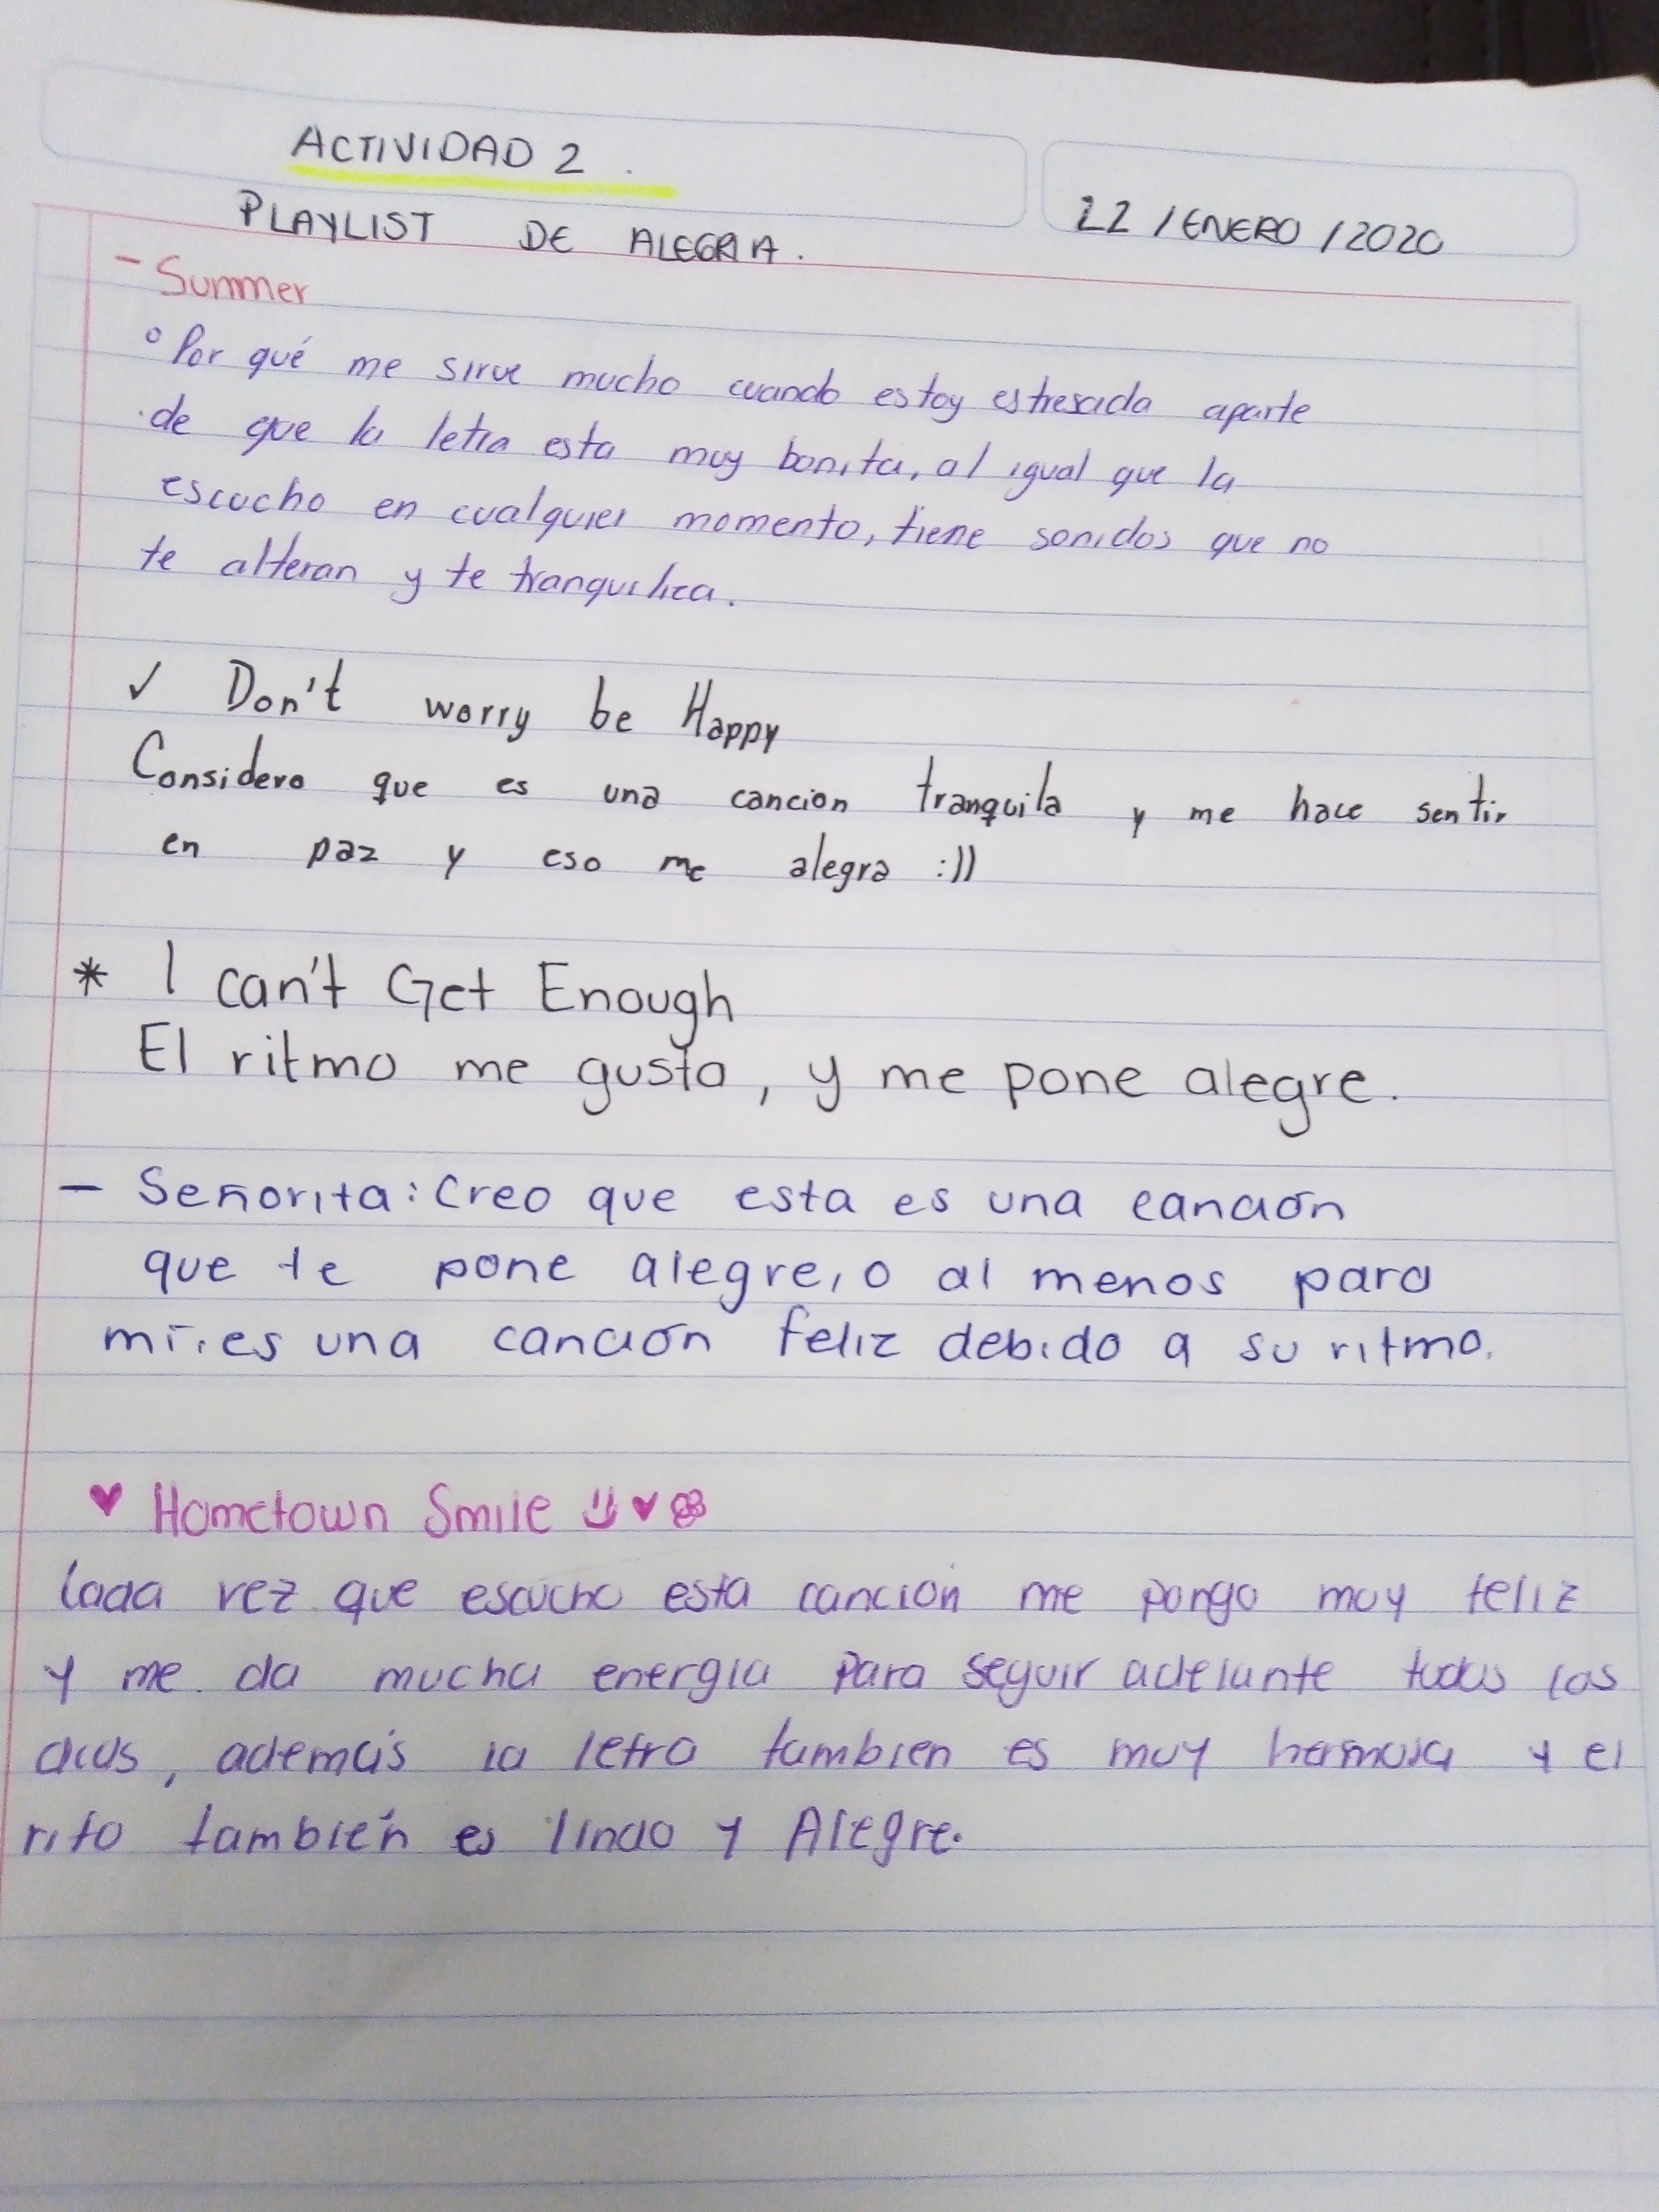 ACTIVIDAD 2.
PLAYLIST DE ALEGRIA.
22 / ENERO / 2020
- Summer
° Por qué me sirve mucho cuando estoy estresada aparte
de que la letra esta muy bonita, al igual que la
escucho en cualquier momento, tiene sonidos que no
te alteran y te tranquiliza.
✓ Don't worry be Happy
Considero que es una cancion tranquila y me hace sentir
en paz y eso me alegra :))
* I can't Get Enough
El ritmo me gusta, y me pone alegre.
- Señorita: Creo que esta es una canción
que te pone alegre, o al menos para
mí, es una canción feliz debido a su ritmo.
♥ Hometown Smile ♥
Cada vez que escucho esta canción me pongo muy feliz
y me da mucha energia para seguir adelante todos los
dias, además la letra tambien es muy hermosa y el
rito también es lindo y Alegre.